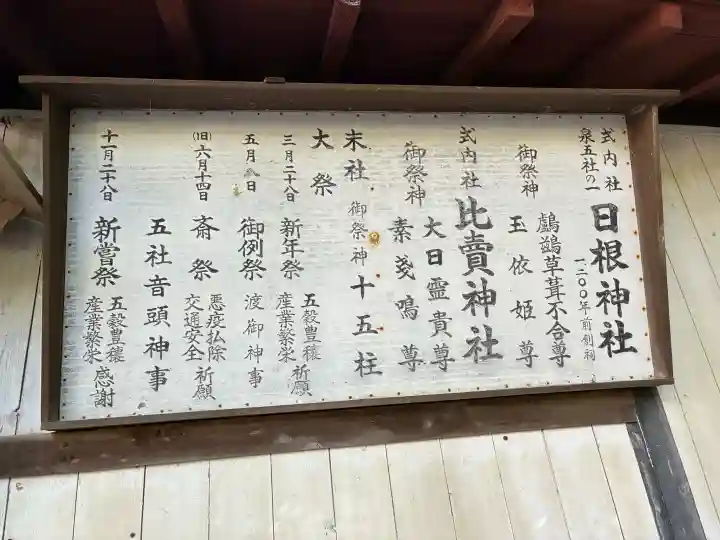 式内社
泉五社の一
日根神社
一二〇〇年前創祠
御祭神
鸕鷀草葺不合尊
玉依姫尊
式内社
比賣神社
御祭神
大日霊貴尊
素戔鳴尊
末社 御祭神 十五柱
大祭
三月二十八日 新年祭 五穀豊穣 産業繁栄 祈願
五月 日 御例祭 渡御神事
(旧)六月十四日 斎祭 悪疫払除 交通安全 祈願
五社音頭神事
十一月二十八日 新嘗祭 五穀豊穣 産業繁栄 感謝